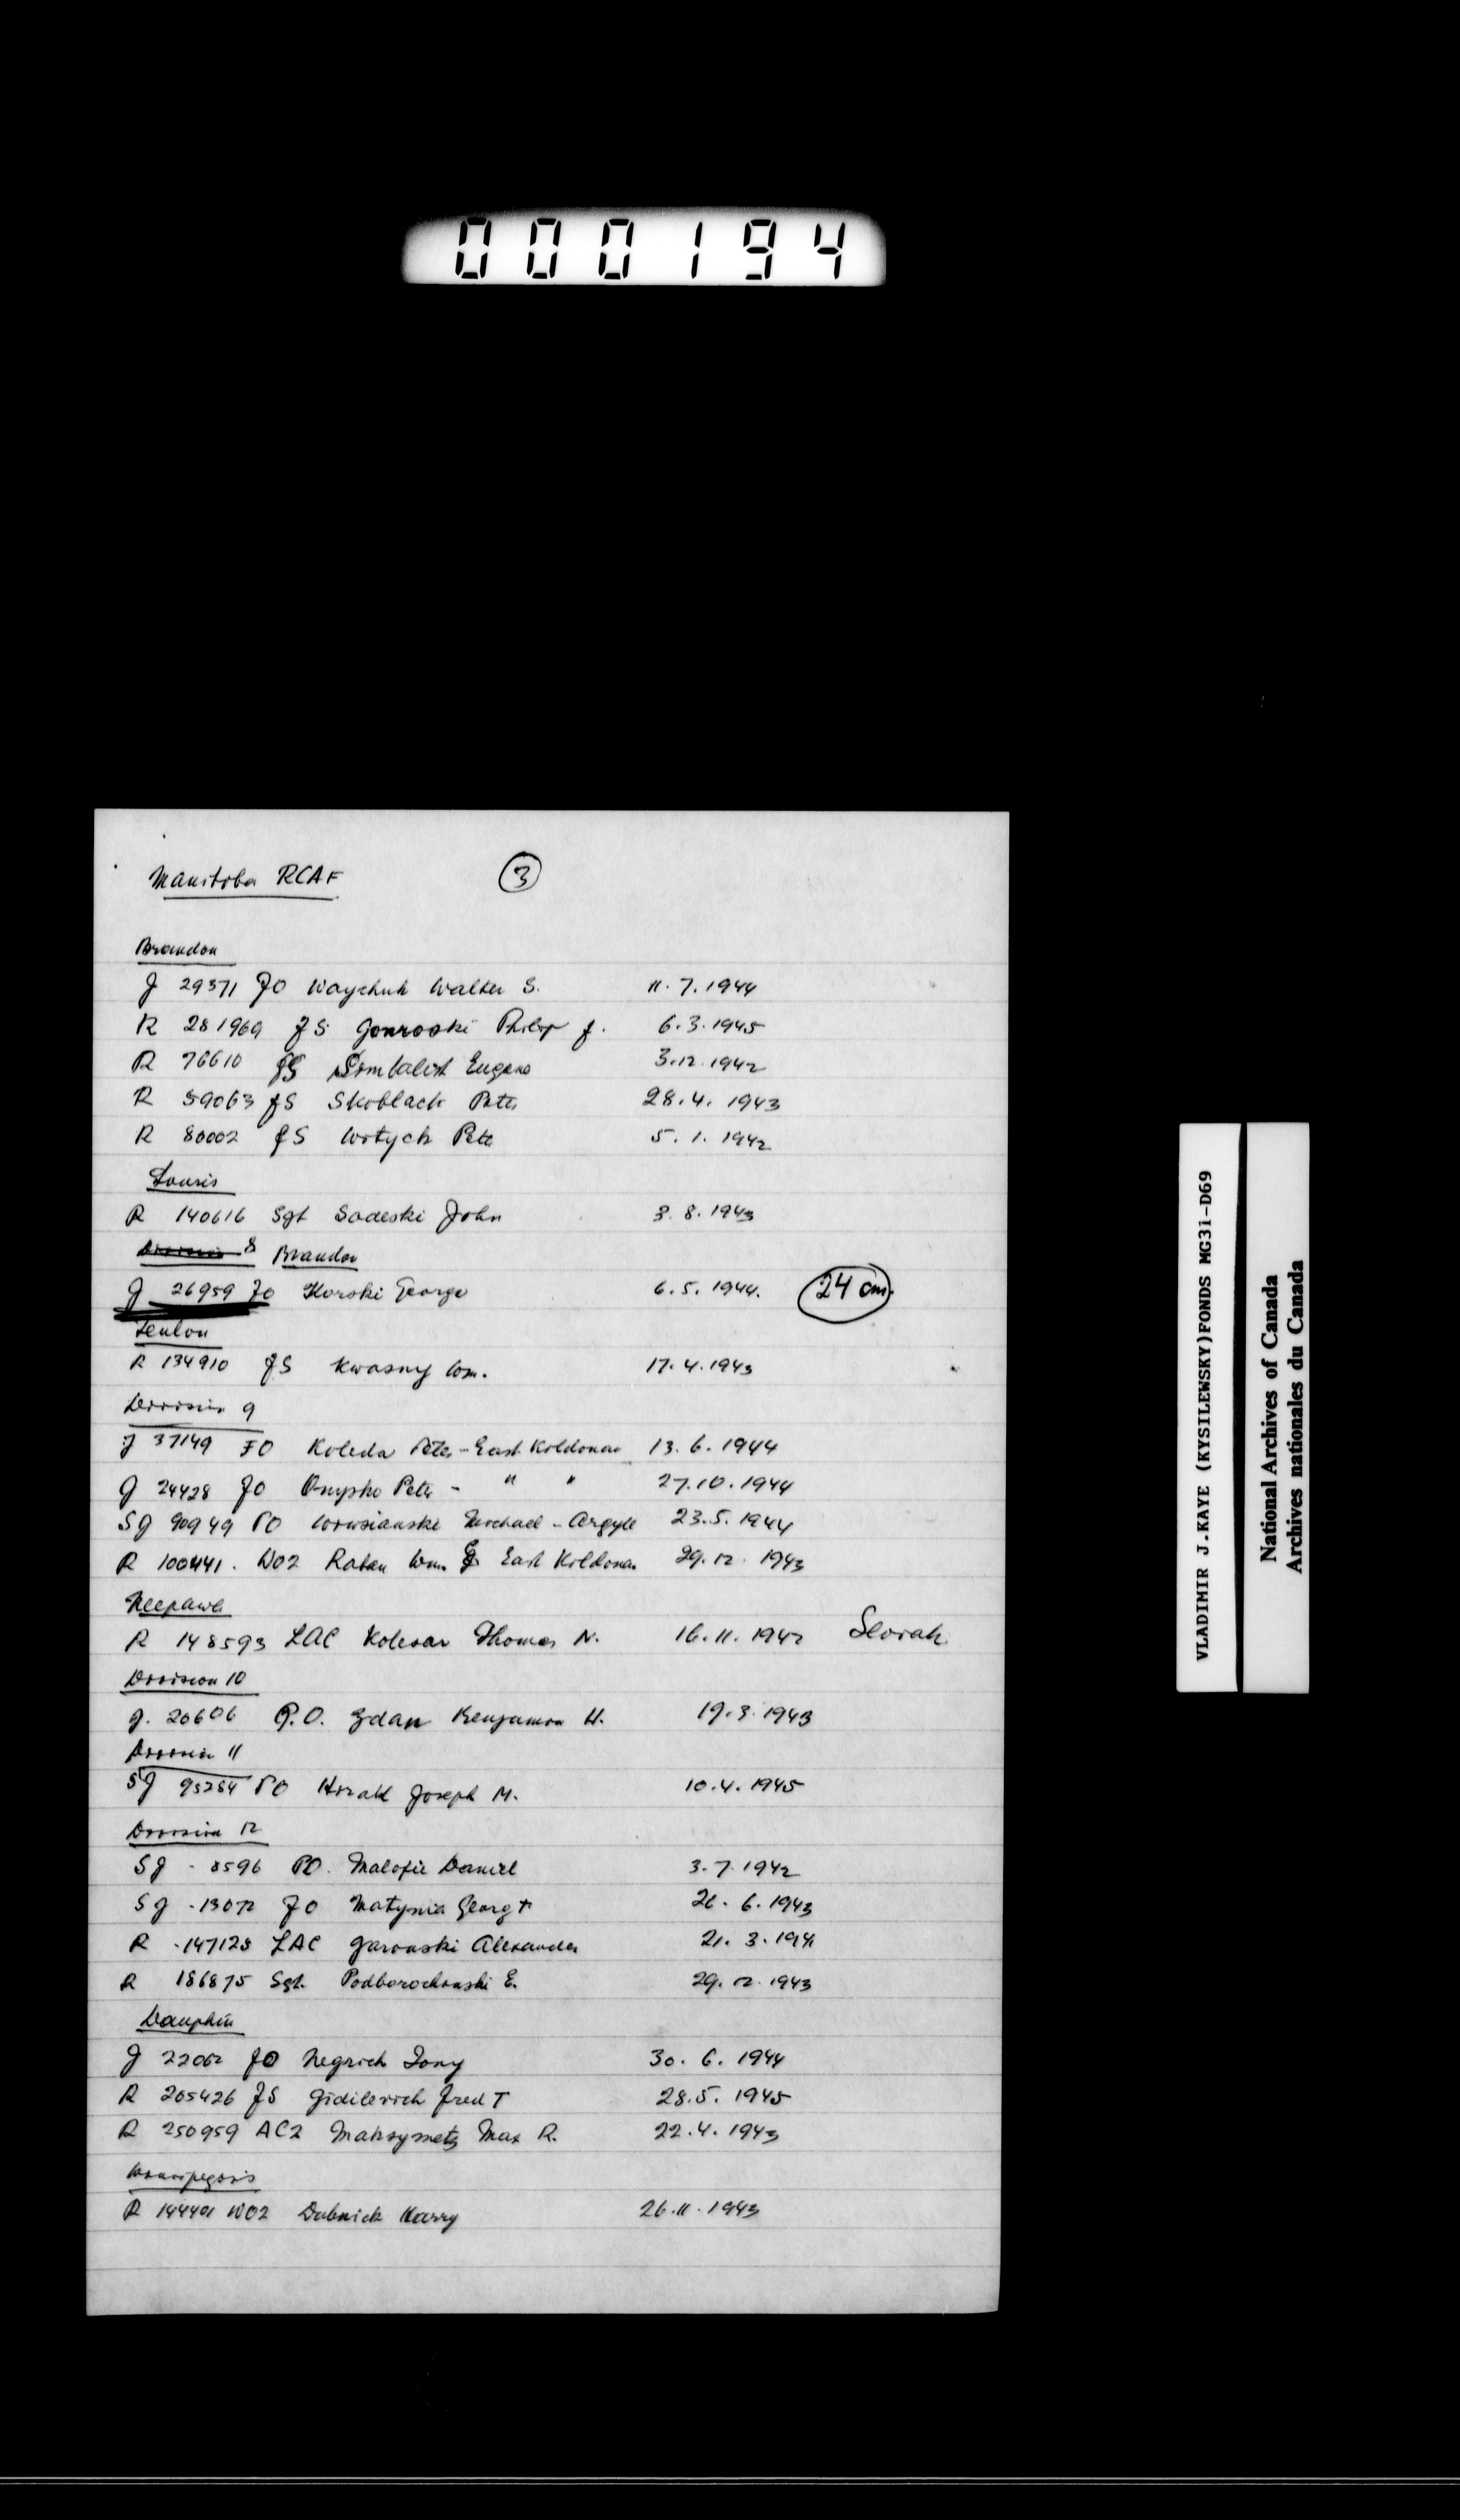 000194
Manitoba RCAF
3
Brandon
J 29371 FO Waychuk Walter S. 11.7.1944
R 281969 FS Gonroski Philip J. 6.3.1945
R 76610 FS Symbalist Eugene 3.12.1942
R 59063 FS Skoblack Peter 28.4.1943
R 80002 FS Wotych Pete 5.1.1942
Souris
R 140616 Sgt Sadeski John 3.8.1943
8 Brandon
J 26959 FO Horski George 6.5.1944. 24 cm.
Teulon
R 134910 FS Kwasny Wm. 17.4.1943
Division 9
J 37149 FO Koleda Peter - East Kildonan 13.6.1944
J 24428 FO Onysko Peter - " " 27.10.1944
SJ 90949 PO Michael - Argyle 23.5.1944
R 100441. WO2 Ratan Wm. East Kildonan 29.12.1943
Neepawa
R 148593 LAC Kolesar Thomas N. 16.11.1942 Slovak
Division 10
J. 20606 P.O. Zdan Benjamin H. 19.3.1943
Division 11
SJ 95284 PO Joseph M. 10.4.1945
Division 12
SJ - 8596 PO. Malofie Daniel 3.7.1942
SJ - 13072 FO Matynia 26.6.1943
R - 147128 LAC Garonski Alexander 21.3.1941
R 186875 Sgt. Podborochonski E. 29.12.1943
Dauphin
J 22062 FO Negrich Tony 30.6.1944
R 205426 FS Gidilevich Fred T 28.5.1945
R 250959 AC2 Maksymetz Max R. 22.4.1943
Winnipegosis
R 144401 WO2 Dubnick Harry 26.11.1943
VLADIMIR J.KAYE (KYSILEWSKY)FONDS MG31-D69
National Archives of Canada
Archives nationales du Canada